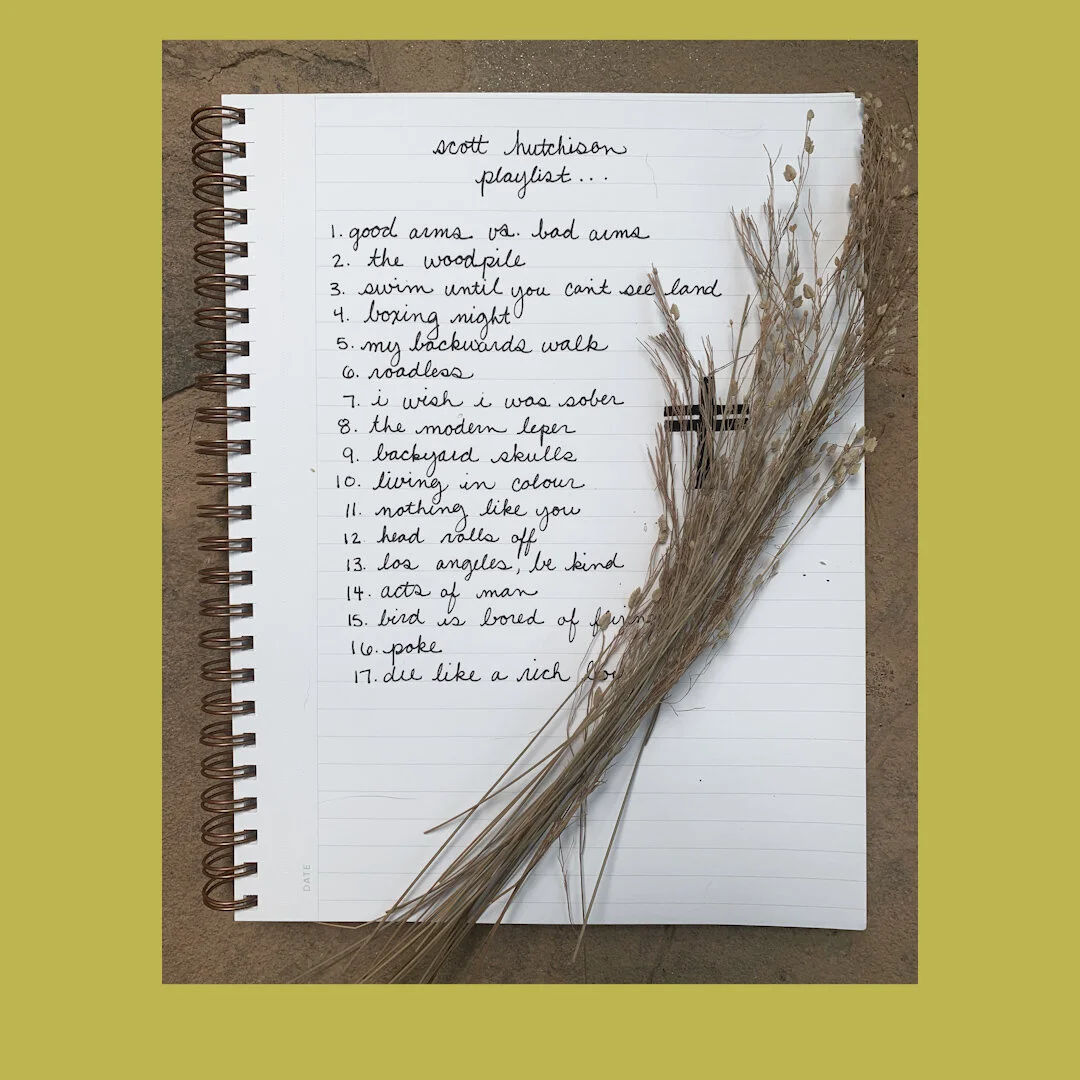 scott hutchison
playlist...
1. good arms vs. bad arms
2. the woodpile
3. swim until you can't see land
4. boxing night
5. my backwards walk
6. roadless
7. i wish i was sober
8. the modern leper
9. backyard skulls
10. living in colour
11. nothing like you
12 head rolls off
13. los angeles, be kind
14. acts of man
15. bird is bored of flying
16. poke
17. die like a rich
DATE